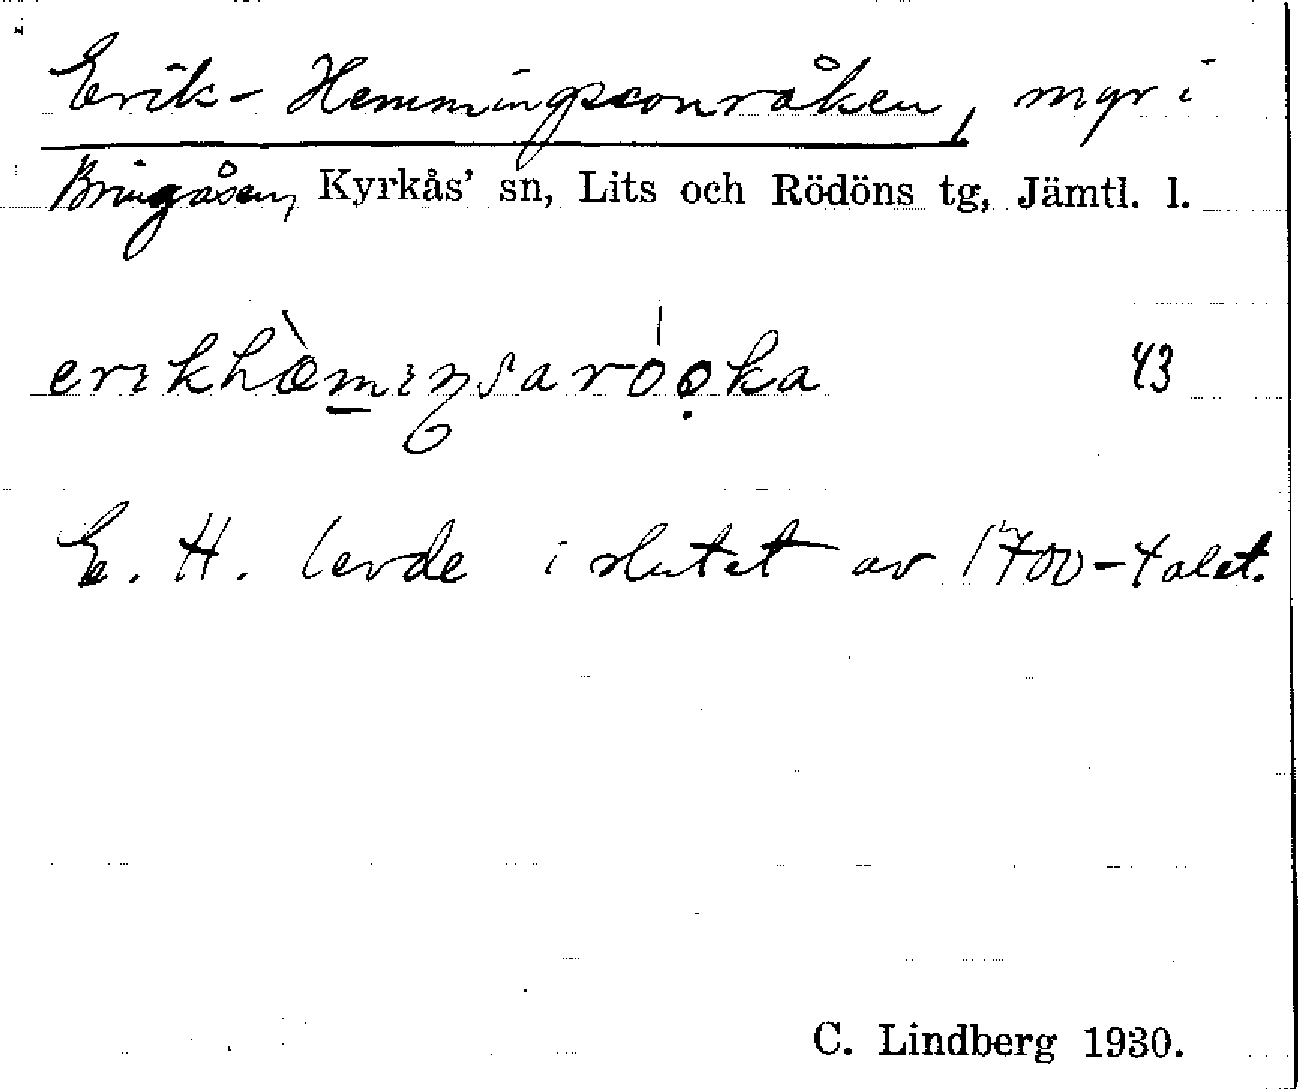 Erik-Hemmingsonråken, myr i
Bringåsen, Kyrkås' sn, Lits och Rödöns tg, Jämtl. l.
43
E. H. levde i slutet av 1700-talet.
C. Lindberg 1930.